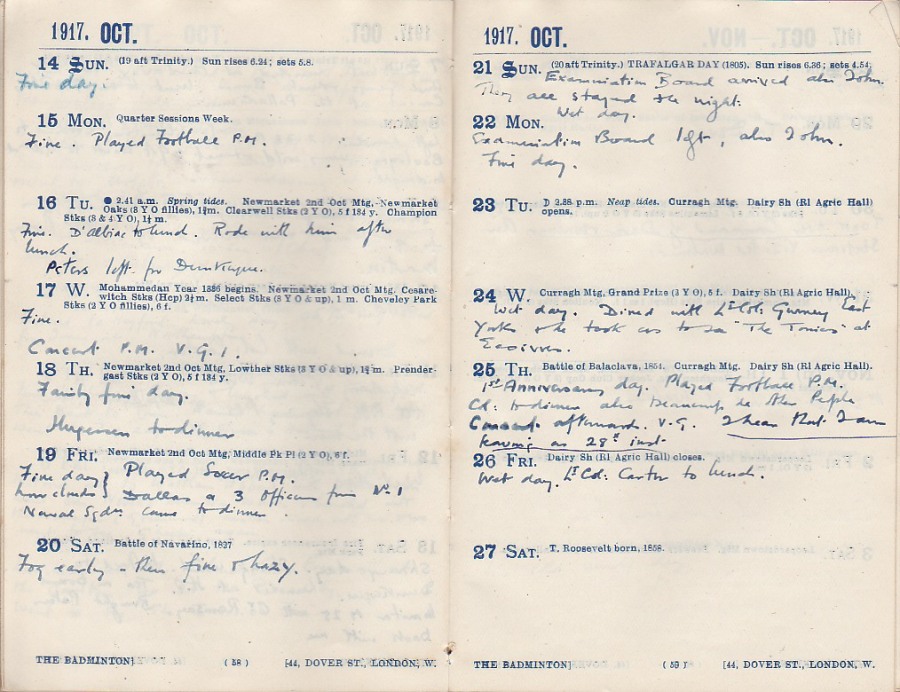 1917. OCT.
14 SUN. (19 aft Trinity.) Sun rises 6.24; sets 5.8.
Fine day.
15 MON. Quarter Sessions Week.
Fine. Played Football P.M.
16 TU. ● 2.41 a.m. Spring tides. Newmarket 2nd Oct Mtg, Newmarket
Oaks (3 Y O fillies), 1¾m. Clearwell Stks (2 Y O), 5 f 134 y. Champion
Stks (3 & 4 Y O), 1¼ m.
Fine. D'albiac to lunch. Rode with him after
lunch.
Peters left for Dunkirque.
17 W. Mohammedan Year 1336 begins. Newmarket 2nd Oct Mtg. Cesare-
witch Stks (Hcp) 2¼m. Select Stks (3 Y O & up), 1 m. Cheveley Park
Stks (2 Y O fillies), 6 f.
Fine.
Concert P.M. V.G.!
18 TH. Newmarket 2nd Oct Mtg, Lowther Stks (3 Y O & up), 1¾m. Prender-
gast Stks (2 Y O), 5 f 134 y.
Fairly fine day.
to dinner
19 FRI. Newmarket 2nd Oct Mtg, Middle Pk Pl (2 Y O), 6 f.
Fine day } Played Soccer P.M.
low clouds } Dallas & 3 Officers from No. 1
Naval Sqdn. came to dinner.
20 SAT. Battle of Navarino, 1827
Fog early - then fine & hazy.
THE BADMINTON] (58) [44, DOVER ST., LONDON, W.
1917. OCT.
21 SUN. (20 aft Trinity.) TRAFALGAR DAY (1805). Sun rises 6.36; sets 4.54.
Examination Board arrived also John.
They all stayed the night.
Wet day.
22 MON.
Examination Board left, also John.
Fine day.
23 TU. ☽ 2.38 p.m. Neap tides. Curragh Mtg. Dairy Sh (Rl Agric Hall)
opens.
24 W. Curragh Mtg, Grand Prize (3 Y O), 5 f. Dairy Sh (Rl Agric Hall).
Wet day. Dined with Lt Col: Gurney East
Yorks & he took us to see "The Tonics" at
Ecoivres.
25 TH. Battle of Balaclava, 1854. Curragh Mtg. Dairy Sh (Rl Agric Hall).
1st Anniversary day. Played Football P.M.
to dinner also Beauchamp & other People
Concert afterwards. V.G. I hear that I am
leaving on 28th inst.
26 FRI. Dairy Sh (Rl Agric Hall) closes.
Wet day. Lt Col: Carter to lunch.
27 SAT. T. Roosevelt born, 1858.
THE BADMINTON] (59) [44, DOVER ST., LONDON, W.